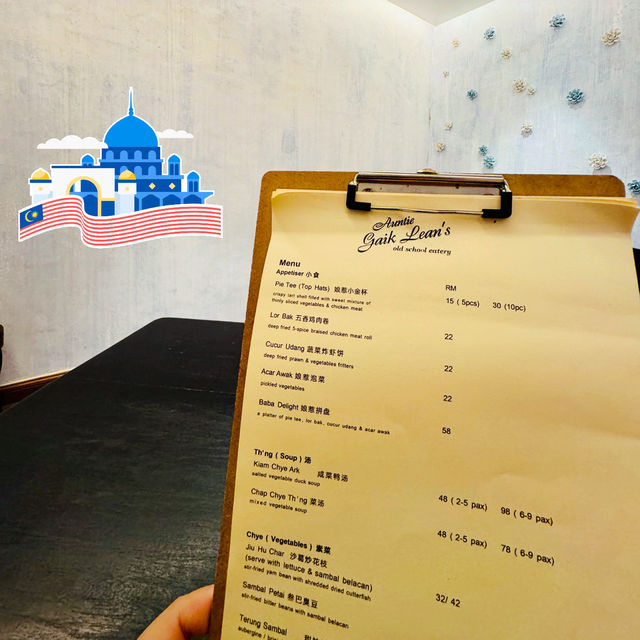 Auntie
Gaik Lean's
old school eatery
Menu
Appetiser 小食
RM
Pie Tee (Top Hats) 娘惹小金杯
15 ( 5pcs) 30 (10pc)
crispy tart shell filled with sweet mixture of
thinly sliced vegetables & chicken meat
Lor Bak 五香鸡肉卷
22
deep fried 5-spice braised chicken meat roll
Cucur Udang 蔬菜炸虾饼
22
deep fried prawn & vegetables fritters
Acar Awak 娘惹泡菜
22
pickled vegetables
Baba Delight 娘惹拼盘
58
a platter of pie tee, lor bak, cucur udang & acar awak
Th'ng ( Soup ) 汤
Kiam Chye Ark 咸菜鸭汤
48 ( 2-5 pax) 98 ( 6-9 pax)
salted vegetable duck soup
Chap Chye Th'ng 菜汤
48 ( 2-5 pax) 78 ( 6-9 pax)
mixed vegetable soup
Chye ( Vegetables ) 素菜
Jiu Hu Char 沙葛炒花枝
32/ 42
(serve with lettuce & sambal belacan)
stir-fried yam bean with shredded dried cutterfish
Sambal Petai 叁巴臭豆
stir-fried bitter beans with sambal belacan
Terung Sambal
aubergine /